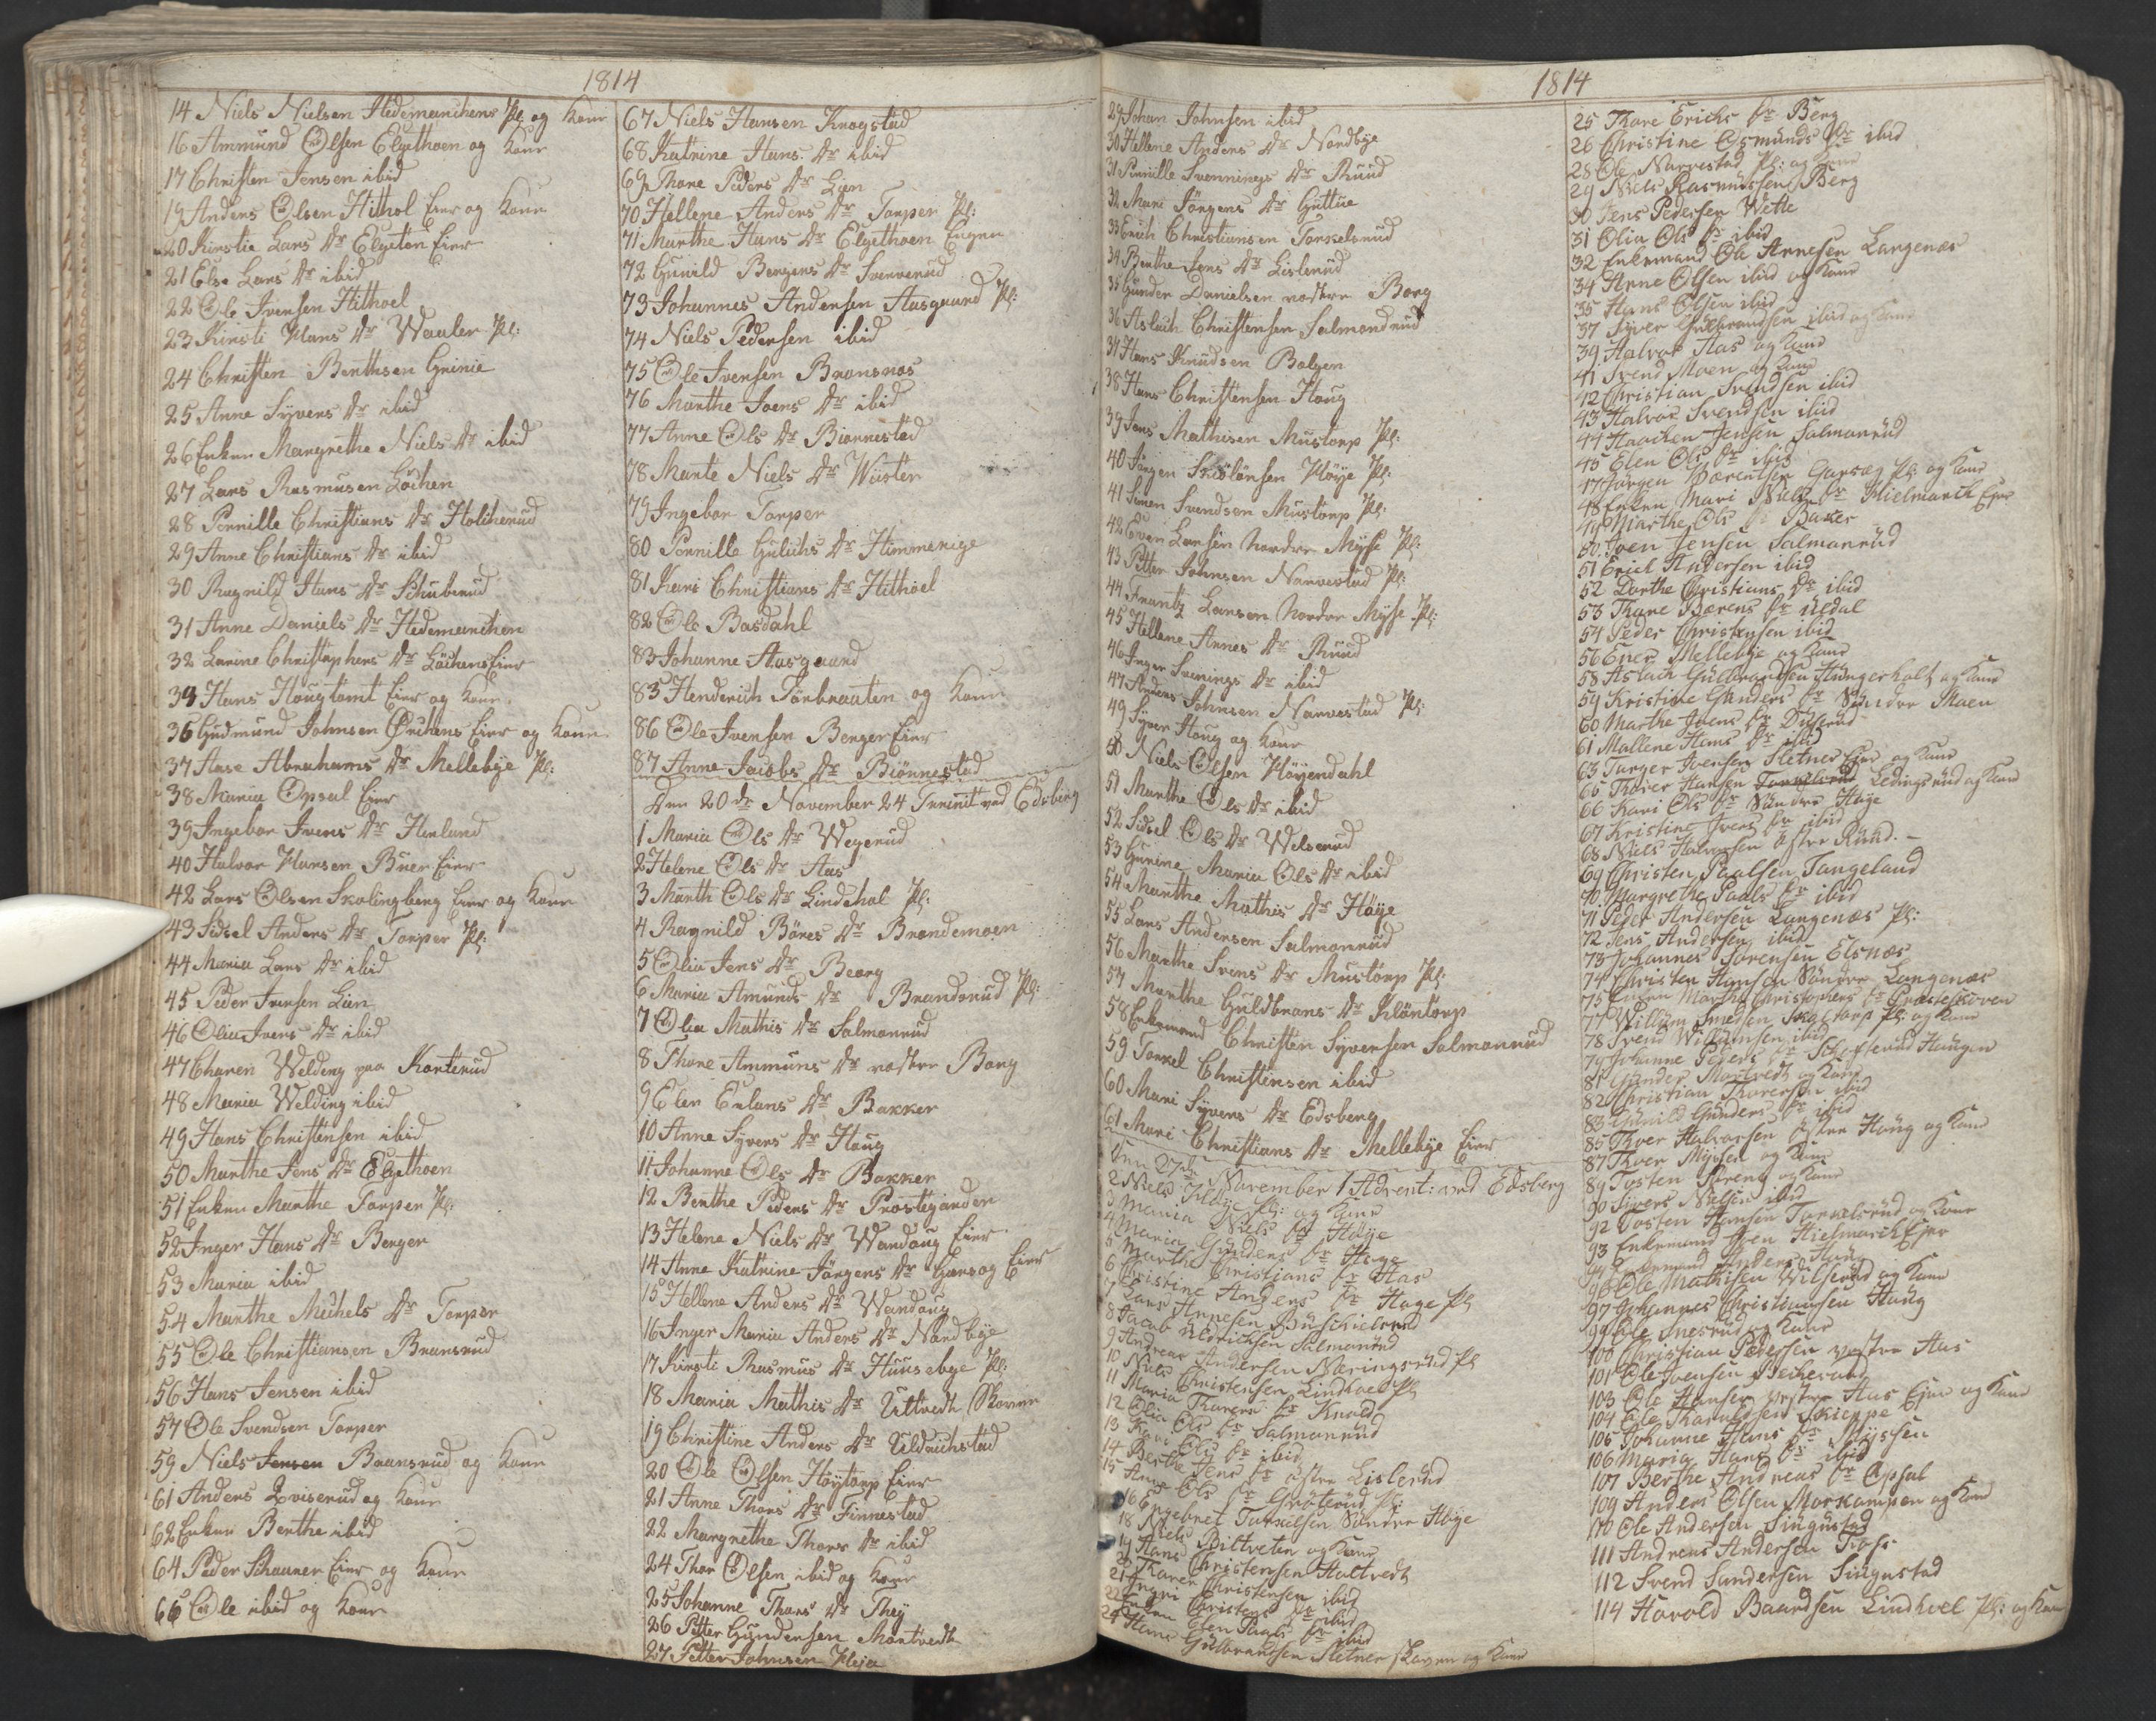 1814
14 Niels Nielsen Hedemarchens Pl: og Kone
16 Ammund Olsen Elgethoen og Kone
17 Christen Jensen ibid
19 Anders Olsen Hithol Eier og Kone
20 Kirstie Lars Dr Elgeton Eier
21 Else Lars Dr ibid
22 Ole Ivensen Hithoel
23 Kirsti Hans Dr Waaler Pl:
24 Christen Benthsen Grinie
25 Anne Syvers Dr ibid
26 Enken Margrethe Niels Dr ibid
27 Lars Rasmusen Löchen
28 Pernille Christians Dr Holikerud
29 Anne Christians Dr ibid
30 Ragnild Hans Dr Schuberud
31 Anne Daniels Dr Hedemarchen
32 Larine Christophers Dr Löchens Eier
34 Hans Hougtomt Eier og Kone
36 Gudmund Johnsen Quchens Eier og Kone
37 Aase Abrahams Dr Mellebye Pl:
38 Maria Opsal Eier
39 Ingebor Ivers Dr Herland
40 Halvor Hansen Buer Eier
42 Lars Olsen Skolingberg Eier og Kone
43 Sidsel Anders Dr Torper Pl:
44 Maria Lars Dr ibid
45 Peder Ivensen Lien
46 Olia Ivers Dr ibid
47 Charen Welding paa Korterud
48 Maria Welding ibid
49 Hans Christensen ibid
50 Marthe Jens Dr Elgethoen
51 Enken Marthe Torper Pl:
52 Inger Hans Dr Berger
53 Maria ibid
54 Marthe Michels Dr Torper
55 Ole Christiansen Bransrud
56 Hans Jensen ibid
57 Ole Svendsen Torper
59 Niels Jensen Braansrud og Kone
61 Anders Qviserud og Kone
62 Enken Berthe ibid
64 Peder Skauner Eier og Kone
66 Ole ibid og Kone
67 Niels Hansen Knogstad
68 Katrine Hans Dr ibid
69 Thore Peders Dr Lien
70 Hellene Anders Dr Torper Pl:
71 Marthe Hans Dr Elgethoen Eigner
72 Gunild Bergers Dr Svenverud
73 Johannes Andersen Aasgaard Pl:
74 Niels Pedersen ibid
75 Ole Ivensen Bronsnos
76 Marthe Joens Dr ibid
77 Anne Ols Dr Biönnestad
78 Marte Niels Dr Wüster
79 Ingebor Torper
80 Pernille Gulichs Dr Himmerige
81 Kari Christians Dr Hithoel
82 Ole Basdahl
83 Johanne Aasgaard
85 Henderich Törkraaten og Kone
86 Ole Ivensen Berger Eier
87 Anne Jacobs Dr Biönnestad
Den 20de November 24 Trinit: ved Edsberg
1 Maria Ols Dr Wegerud
2 Helene Ols Dr Aas
3 Marth Ols Dr Lindehol Pl:
4 Ragnild Börres Dr Brandemoen
5 Olia Jens Dr Bearg
6 Maria Amunds Dr Brandsrud Pl:
7 Olia Mathis Dr Salmonrud
8 Thore Ammuns Dr vestre Borg
9 Elen Erlans Dr Bakker
10 Anne Syvers Dr Houg
11 Johanne Ols Dr Bakker
12 Berthe Peders Dr Prostegarden
13 Helene Niels Dr Wandoug Eier
14 Anne Katrine Jörgens Dr Garsog Eier
15 Hellene Anders Dr Wandoug
16 Inger Maria Anders Dr Nordbye
17 Kirsti Rasmus Dr Huusebye Pl:
18 Maria Mathis Dr Uttvedt Skoven
19 Christine Anders Dr Uldrichstad
20 Ole Olsen Höytorp Eier
21 Anne Thors Dr Finnestad
22 Margrethe Thors Dr ibid
24 Thor Olsen ibid og Kone
25 Johanne Thors Dr They
26 Petter Gundersen Mortvedt
27 Petter Johnsen Heja
1814
29 Johan Johnsen ibid
30 Hellene Anders Dr Nordbye
31 Pernille Svennings Dr Ruud
32 Mari Jörgens Dr Guttue
33 Erich Christiansen Torkelsrud
34 Berthe Jens Dr Lislerud
35 Gunder Danielsen vestre Borg
36 Aslach Christensen Salmonrud
37 Hans Knudsen Bolgen
38 Hans Christensen Houg
39 Jens Mathisen Mustorp Pl:
40 Jörgen Höye Pl:
41 Simen Svendsen Mustorp Pl:
42 Even Larsen nordre Myse Pl:
43 Petter Johnsen Narvestad Pl:
44 Frantz Larsen nordre Myse Pl:
45 Hellene Annes Dr Ruud
46 Inger Svenings Dr ibid
47 Anders Johnsen Narvestad Pl:
49 Syver Houg og Kone
50 Niels Olsen Höyendahl
51 Marthe Ols Dr ibid
52 Sidsel Ols Dr Welserud
53 Gunine Maria Ols Dr ibid
54 Marthe Mathis Dr Höye
55 Lars Andersen Salmonrud
56 Marthe Svens Dr Mustorp Pl:
57 Marthe Guldbrans Dr Klöntorp
58 Enkemand Christen Syvensen Salmonrud
59 Torkel Christensen ibid
60 Mari Syvers Dr Edsberg
61 Mari Christians Dr Mellebye Eier
Den 27de November 1 Advent: ved Edsberg
2 Niels Höye Pl: og Kone
3 Maria Niels Dr Höye
4 Maria Gunders Dr Höye
5 Marthe Christians Dr Aas
6 Christine Anders Dr Hage Pl
7 Lars Arnesen Buskierud
8 Jacob Uldrichsen Salmonrud
9 Andreas Andersen Neringsrud Pl
10 Niels Christensen Lindhoel Pl
11 Maria Thorers Dr Knold
12 Olia Ols Dr Salmonrud
13 Kari Ols Dr ibid
14 Berthe Jens Dr östre Lislerud
15 Anne Ols Dr Gröterud Pl:
16 Engebret Torkelsen Söndre Höye
18 Niels Biltveten og Kone
19 Hans Christensen Haltvedt
20 Thorer Christensen ibid
21 Ingri Christens Dr ibid
22 Enken Elen Paals Dr ibid
24 Hans Gulbrandsen Sletner skoven og Kone
25 Thore Erichs Dr Berg
26 Christine Osmunds Dr ibid
28 Ole Narvestad Pl: og Kone
29 Niels Rasmussen Berg
30 Jens Pedersen Wette
31 Olia Ols Dr ibid
32 Enkemand Ole Arnesen Langenæs
34 Arne Olsen ibid og Kone
35 Hans Olsen ibid
37 Syver Gulbrandsen ibid og Kone
39 Halvor Aas og Kone
41 Svend Moen og Kone
42 Christian Svendsen ibid
43 Halvor Svendsen ibid
44 Haachen Jensen Salmonrud
45 Elen Ols Dr ibid
47 Jörgen Borentsen Garseg Pl: og Kone
48 Enken Mari Niels Dr Hielmarck Ejer
49 Marthe Ols Dr Baker
50 Joen Jensen Salmonrud
51 Erich Andersen ibid
52 Dorthe Christians Dr ibid
53 Thore Börens Dr Uldal
54 Peder Christensen ibid
56 Ener Mellebye og Kone
58 Aslach Gulbrandsen Hungerholt og Kone
59 Kristine Gunders Dr Söndre Moen
60 Marthe Joens Dr Dillerud
61 Mallene Hans Dr ibid
63 Turger Ivensen Sletner Ejer og Kone
65 Thorer Hansen Ledingsrud og Kone
66 Kari Ols Dr Söndre Höye
67 Kristine Ivers Dr ibid
68 Niels Halvorsen östre Ruud.
69 Christen Paalsen Tangeland
70 Margrethe Paals Dr ibid
71 Peder Andersen Langenæs Pl:
72 Jens Andersen ibid
73 Johannes Sörensen Elsnæs
74 Christen Hansen Söndre Langenæs
75 Enken Marthe Christophers Dr Presteskoven
77 Willum Smedsen Skaltorp Pl: og Kone
78 Svend Willumsen ibid
79 Johanne Peders Dr Schofterud Haugen
81 Gunder Mortvedt og Kone
82 Christian Thorersen ibid
83 Gunild Gunders Dr ibid
85 Thoer Halvorsen östre Houg og Kone
87 Thoer Mysen og Kone
89 Tosten Streng og Kone
90 Sivers Nielsen ibid
92 Tosten Hansen Torkelsrud og Kone
93 Enkemand Joen Hielmarck Ejer
94 Enkemand Anders Houg
96 Ole Mathisen Wilserud og Kone
97 Johannes Christiansen Houg
99 Ole Snesrud og Kone
100 Christian Pedersen vestre Aas
101 Ole Ivensen Beckerud
103 Ole Hansen vestre Aas Ejer og Kone
104 Ole Haraldsen Skieppe
105 Johanne Hans Dr Myssen
106 Maria Hans Dr ibid
107 Berthe Andreas Dr Opsal
109 Anders Olsen Morkampen og Kone
110 Ole Andersen Singustad
111 Andreas Andersen Foss
112 Svend Gundersen Singustad
114 Harold Baardsen Lindhoel Pl: og Kone